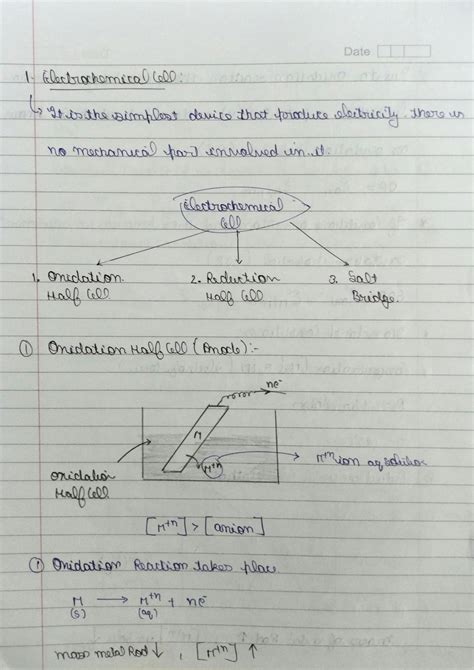 Date
1. Electrochemical Cell
↳ It is the simplest device that produce electricity, there is
no mechanical part envolved in it
Electrochemical
Cell
1. Oxidation 2. Reduction 3. Salt
Half Cell Half Cell Bridge
① Oxidation Half Cell (Anode):-
ne⁻
M
M⁺ⁿ → M⁺ⁿ ion aq solution
Oxidation
Half Cell
[M⁺ⁿ] > [anion]
① Oxidation Reaction takes place
M → M⁺ⁿ + ne⁻
(s) (aq)
mass metal Rod ↓ , [M⁺ⁿ] ↑